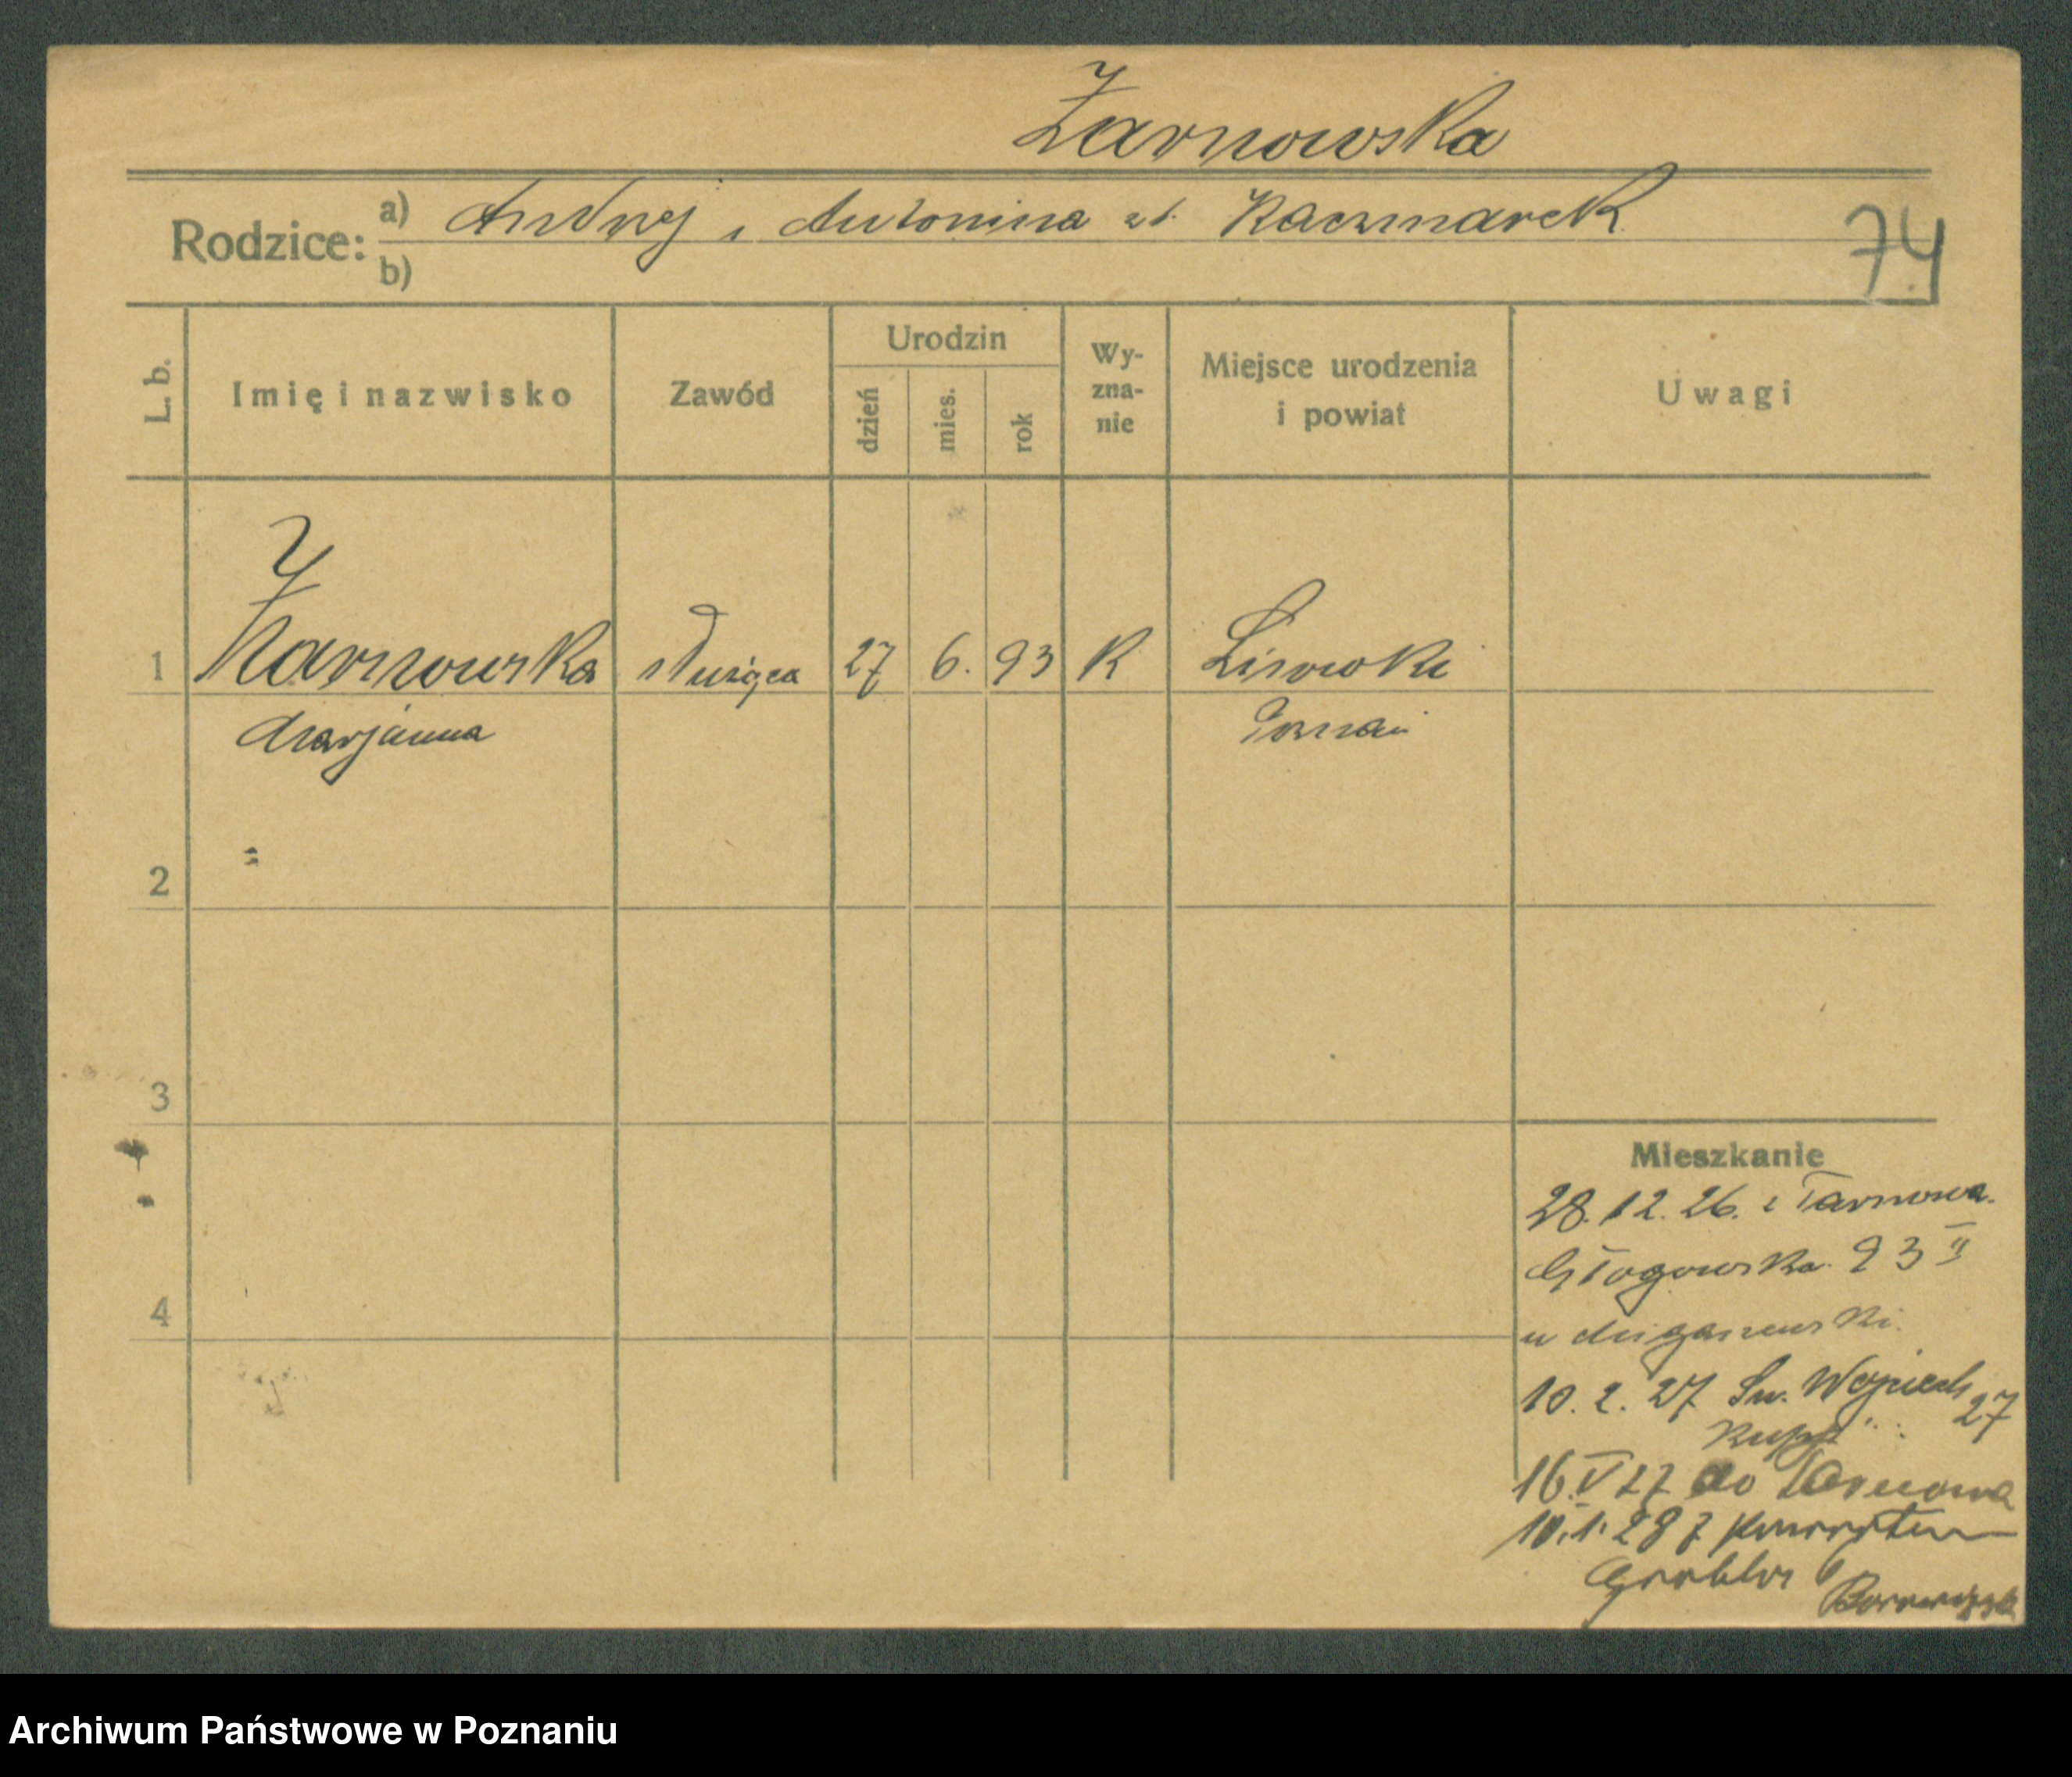 Żarnowska
Rodzice: a) Andrzej i Antonina zd. Kaczmarek
b)
74
L. b.
Imię i nazwisko
Zawód
Urodzin
dzień
mies.
rok
Wy-
zna-
nie
Miejsce urodzenia
i powiat
Uwagi
1 Żarnowska służąca 27 6. 93 K Lisówki
Marjanna Poznań
2
3
4
Mieszkanie
28.12.26. z Tarnowa.
Głogowska. 93 II
u
10. 2. 27 Św. Wojciech 27
16 V 27 do Tarnowa
10.1.28 z
Grobla 6
Archiwum Państwowe w Poznaniu